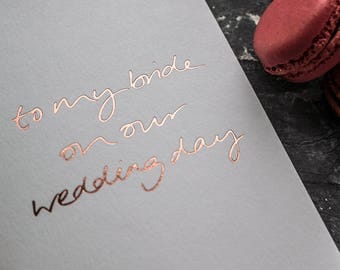 to my bride
on our
wedding day